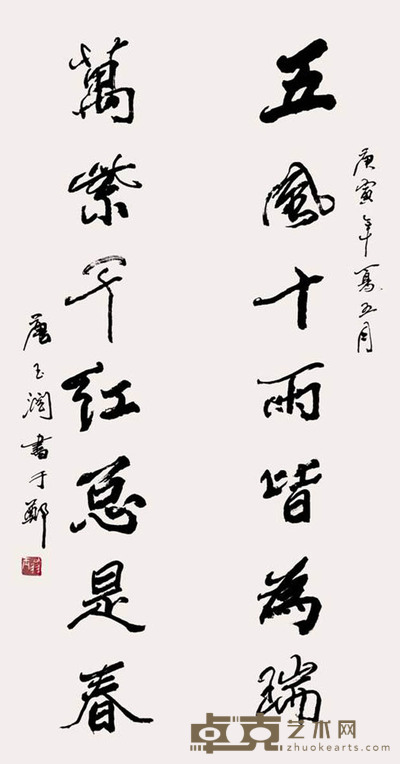 庚寅年夏五月
五風十雨皆為瑞
萬紫千紅总是春
唐玉润書于鄭
卓克艺术网
zhuokearts.com